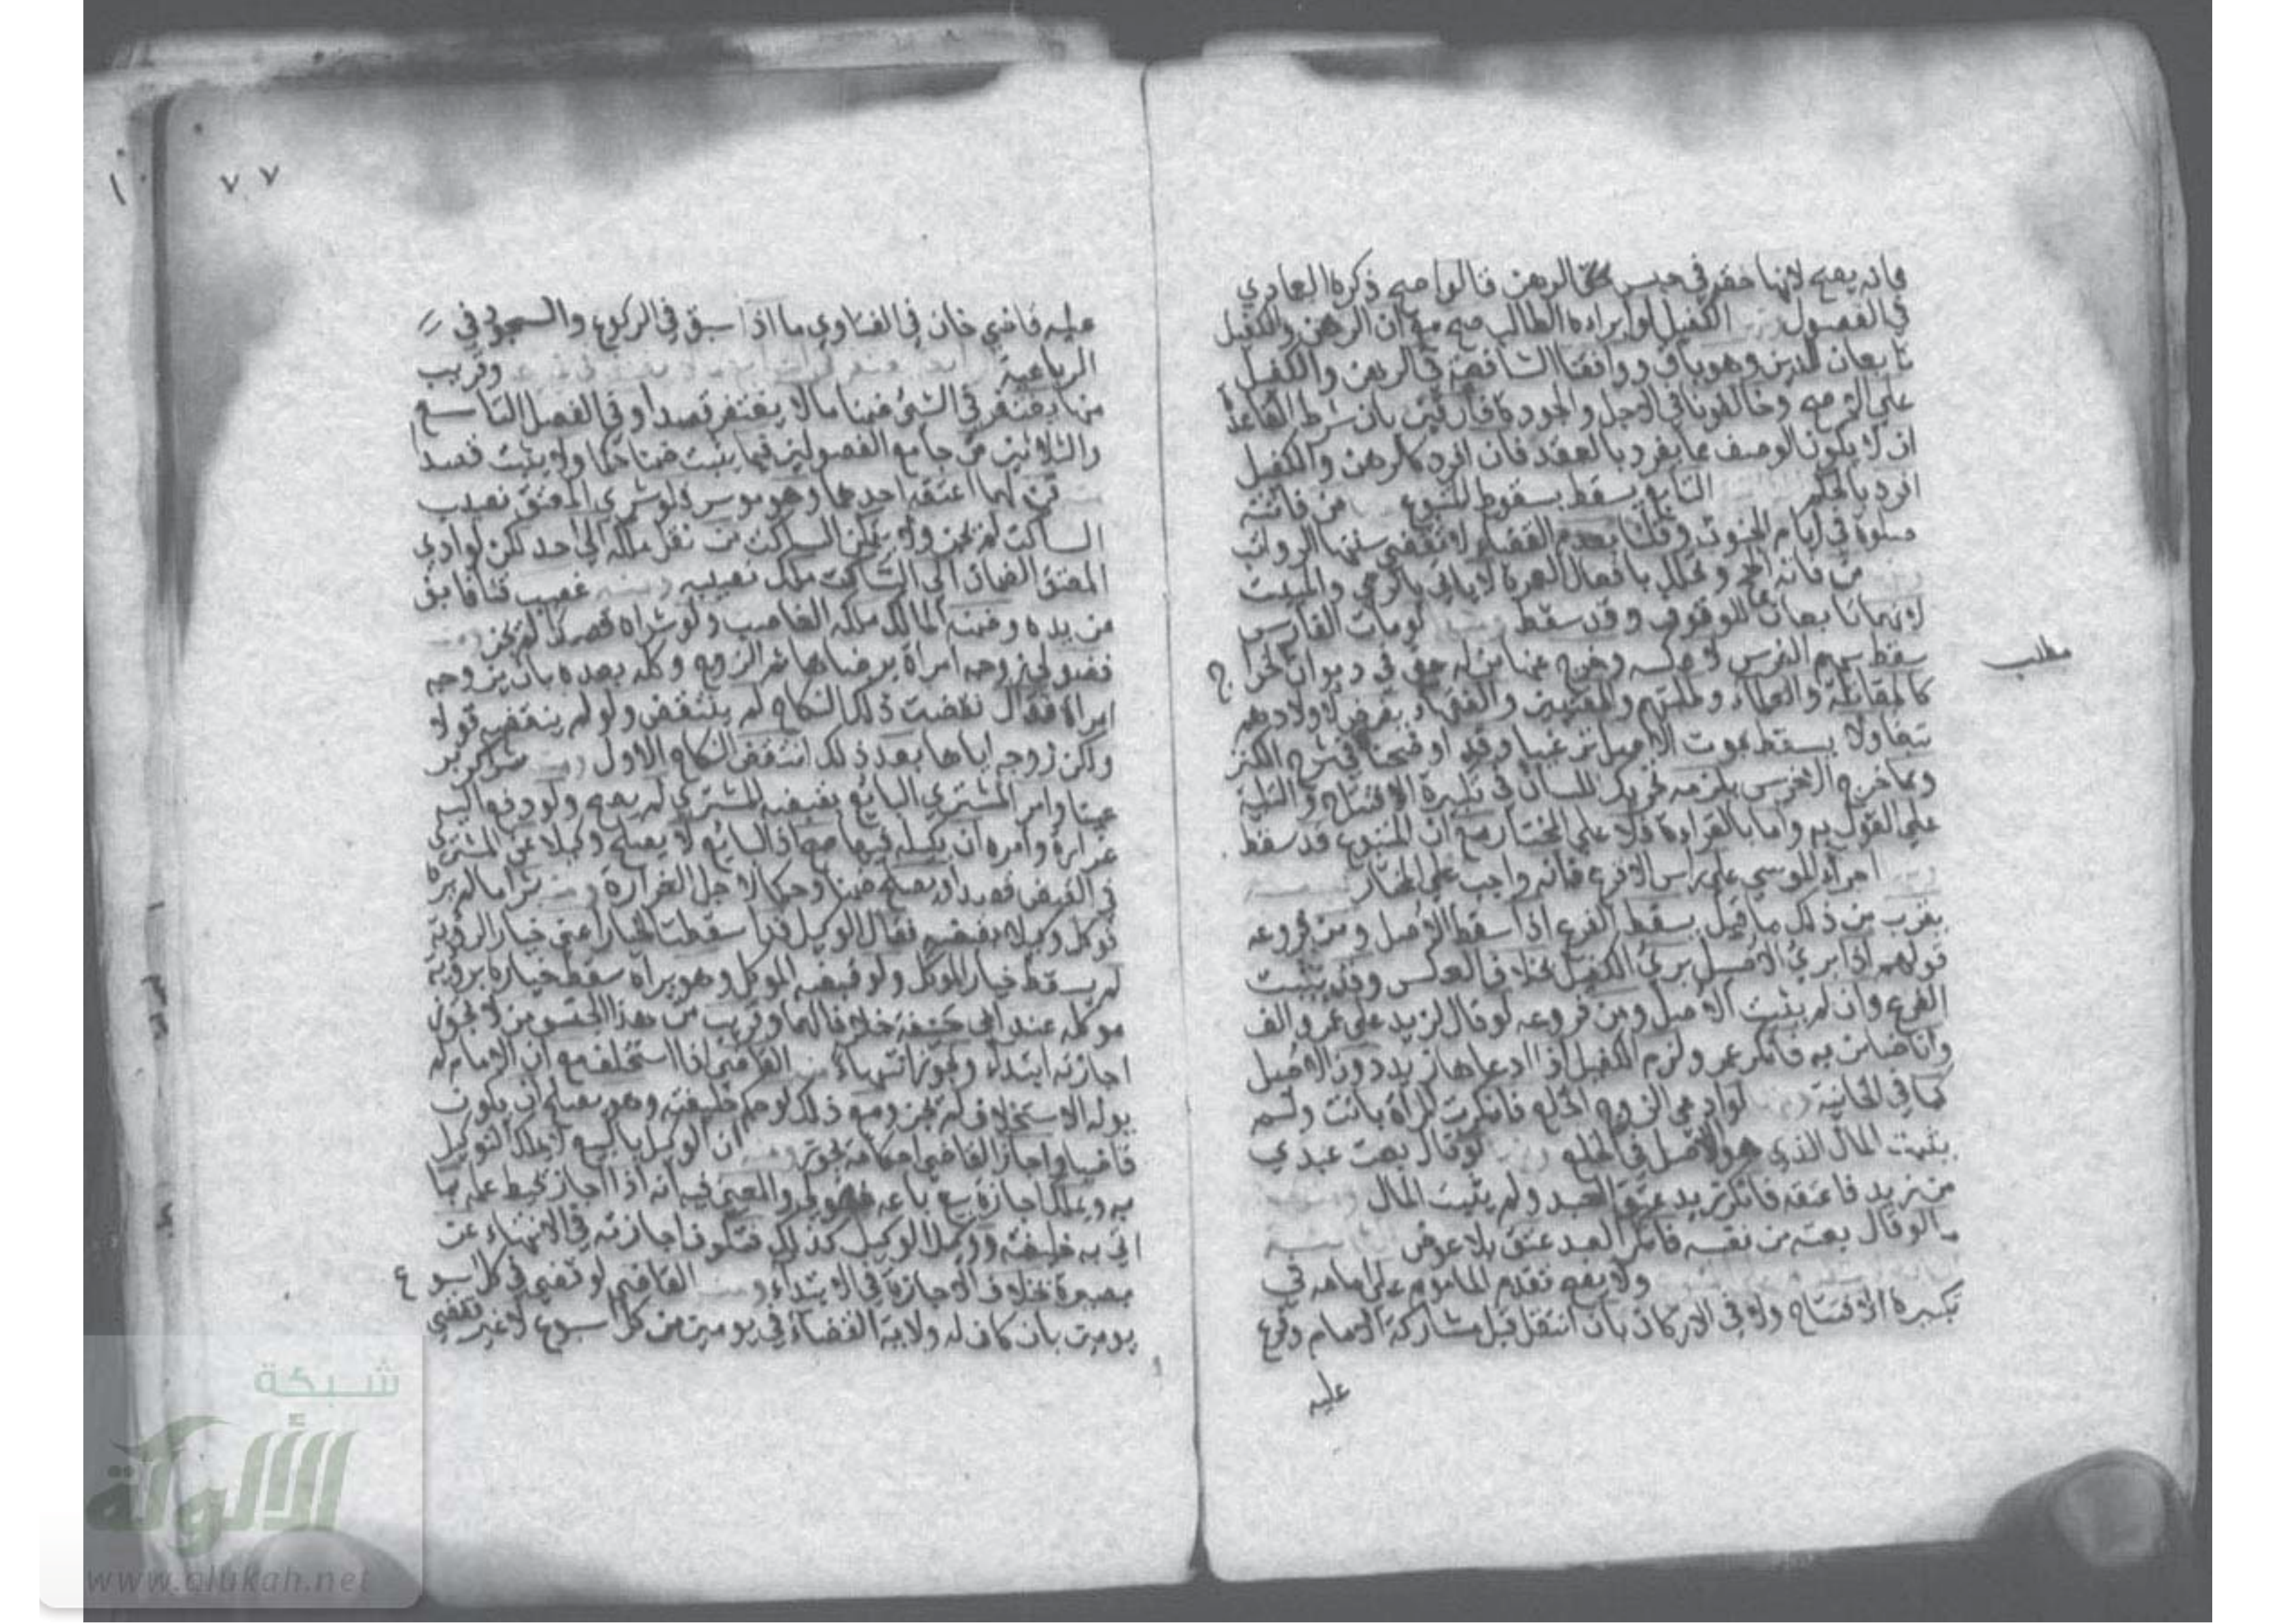 فانه يصح لانها حقه في حبس الرهن قالوا صح ذكره العمادي
في الفصول الكفيل لو ابراه الطالب صح مع ان الرهن والكفيل
تابعان للدين وهو باق ووافقنا الشافعية في الرهن والكفيل
على الاصح وخالفونا في الاجل والجودة فارقين بان شرط القاعدة
ان لا يكون الوصف مما يفرد بالعقد فان افرد كالرهن والكفيل
افرد بالحكم التابع يسقط بسقوط المتبوع من فاتته
صلوة في ايام الجنون وقلنا بعدم القضاء لا تقضى سننها الرواتب
من فاته الحج وتحلل بافعال العمرة لا ياتي بالرمي والمبيت
لانهما تابعان للوقوف وقد سقط ومنه لو مات الفارس
سقط سهم الفرس لا عكسه وخرج عنها من له حق في ديوان الخراج
مطلب
كالمقاتلة والعلماء وطلبتهم والمفتيين والفقهاء يفرض لاولادهم
تبعا ولا يسقط بموت الاصل ترغيبا وقد اوضحناه في شرح الكنز
ومما خرج الاخرس يلزمه تحريك اللسان في تكبيرة الافتتاح والتلبية
على القول به واما بالقراءة فلا على المختار مع ان المتبوع قد سقط
امرار الموسي على راس الاقرع فانه واجب على المختار
يقرب من ذلك ما قيل يسقط الفرع اذا سقط الاصل ومن فروعه
قولهم اذا برئ الاصيل برئ الكفيل بخلاف العكس وقد يثبت
الفرع وان لم يثبت الاصل ومن فروعه لو قال لزيد على عمرو الف
وانا ضامن به فانكر عمر ولزم الكفيل اذا ادعاها زيد دون الاصيل
كما في الخانية لو ادعى الزوج الخلع فانكرت المراة بانت ولم
يثبت المال الذي هو الاصل في الخلع ومنه لو قال بعت عبدي
من زيد فاعتقه فانكر زيد عتق العبد ولم يثبت المال
لو قال بعته من نفسه فانكر العبد عتق بلا عوض
ولا يصح تقدم الماموم على امامه في
تكبيرة الافتتاح ولا في الاركان بان انتقل قبل مشاركة الامام وفرع
عليه
٧٧
عليه قاضي خان في الفتاوي ما اذا سبق في الركوع والسجود في
الرباعية وقريب
منها يغتفر في الشئ ضمنا ما لا يغتفر قصدا وفي الفصل التاسع
والثلاثين من جامع الفصولين فيما يثبت ضمنا حكما ولا يثبت قصدا
قن لهما اعتقه احدهما وهو موسر فلو شرى المعتق نصيب
الساكت لم يجز ولا يمكن الساكت من نقل ملكه الى احد لكن لو ادى
المعتق الضمان الى الساكت ملك نصيبه ومنه غصب قنا فابق
من يده وضمنه المالك ملكه الغاصب ولو شراه قصدا لم يجز
فضولي زوجه امراة برضاها ثم الزوج وكله بعده بان يزوجه
امراة فقال نقضت ذلك النكاح لم ينتقض ولو لم ينقضه قولا
ولكن زوجه اياها بعد ذلك انتقض النكاح الاول ومنه شرى كر بر
عينا وامر المشتري البايع بقبضه للمشتري لم يصح ولو دفع اليه
غرارة وامره ان يكيله فيها صح اذ البايع لا يصلح وكيلا عن المشتري
في القبض قصدا ويصلح ضمنا وحكما لاجل الغرارة ومنه شرا ما لم يره
فوكل وكيلا بقبضه فقال الوكيل قد اسقطت الخيار اعني خيار الرؤية
لم يسقط خيار الموكل ولو قبضه الوكيل وهو يراه سقط خياره برؤية
موكله عند ابي حنيفة خلافا لهما وقريب من هذا الجنس من لا يجوز
اجازته ابتداء ويجوز انتهاء منه القاضي اذا استخلف مع ان الامام لم
يوله الاستخلاف لم يجز ومع ذلك لو حكم خليفته وهو يصلح ان يكون
قاضيا واجاز القاضي احكامه يجوز ومنه ان الوكيل بالبيع لا يملك التوكيل
به ويملك اجازة بيع باعه فضولي والمعنى فيه انه اذا اجاز يحيط علمه بما
اتى به خليفته ووكيل الوكيل كذلك فتكون اجازته في الانتهاء عن
بصيرة بخلاف الاجازة في الابتداء ومنه القاضي لو قضى في كل اسبوع
يومين بان كان له ولاية القضاء في يومين من كل اسبوع لا غير فقضى
شبكة
الألوكة
www.alukah.net